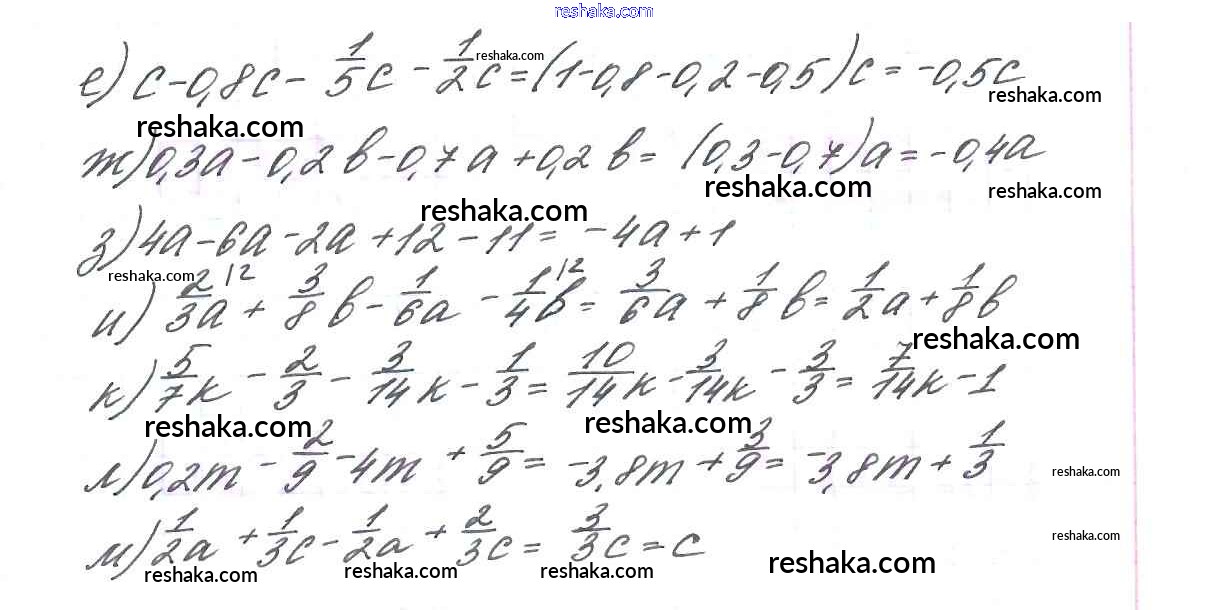 reshaka.com
е) c - 0,8c - 1/5 c - 1/2 c = (1 - 0,8 - 0,2 - 0,5) c = -0,5c
reshaka.com
reshaka.com
reshaka.com
ж) 0,3a - 0,2 b - 0,7 a + 0,2 b = (0,3 - 0,7) a = -0,4a
reshaka.com
reshaka.com
reshaka.com
з) 4a - 6a - 2a + 12 - 11 = -4a + 1
reshaka.com
и) 2/3 a |2 + 3/8 b - 1/6 a - 1/4 b |2 = 3/6 a + 1/8 b = 1/2 a + 1/8 b
reshaka.com
к) 5/7 k - 2/3 - 3/14 k - 1/3 = 10/14 k - 3/14 k - 3/3 = 7/14 k - 1
reshaka.com
reshaka.com
л) 0,2m - 2/9 - 4m + 5/9 = -3,8m + 3/9 = -3,8m + 1/3
reshaka.com
м) 1/2 a + 1/3 c - 1/2 a + 2/3 c = 3/3 c = c
reshaka.com
reshaka.com
reshaka.com
reshaka.com
reshaka.com